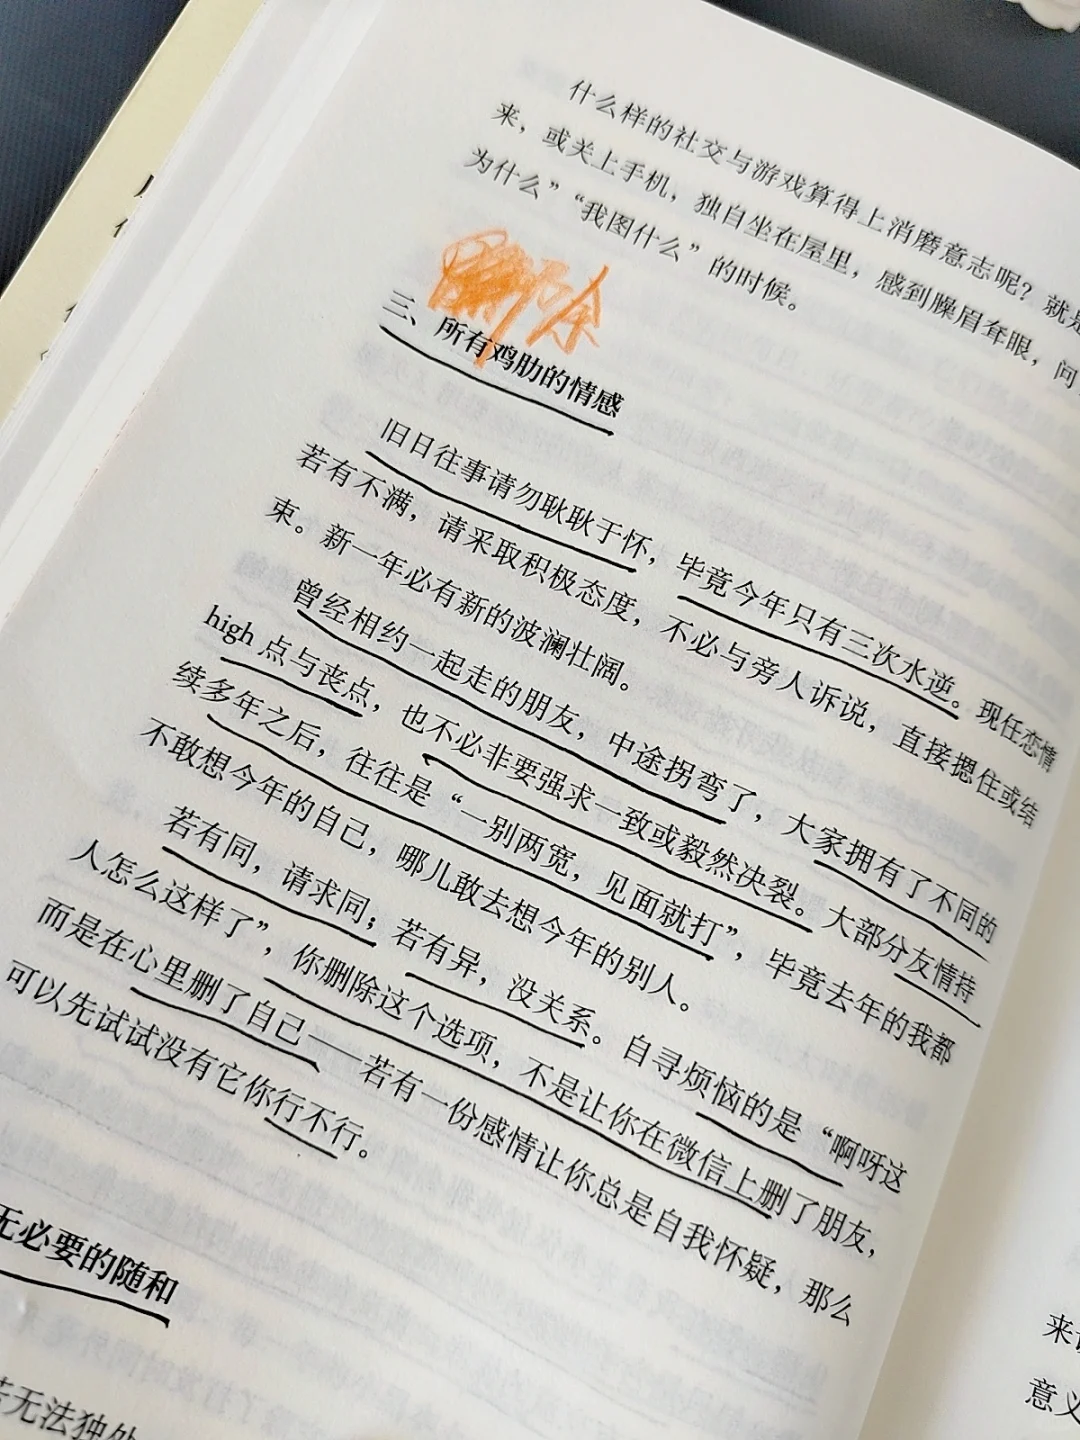 什么样的社交与游戏算得上消磨意志呢？就是
来，或关上手机，独自坐在屋里，感到臊眉耷眼，问
为什么”“我图什么”的时候。
删除
三、所有鸡肋的情感
旧日往事请勿耿耿于怀，毕竟今年只有三次水逆。现任恋情
若有不满，请采取积极态度，不必与旁人诉说，直接摁住或结
束。新一年必有新的波澜壮阔。
曾经相约一起走的朋友，中途拐弯了，大家拥有了不同的
high 点与丧点，也不必非要强求一致或毅然决裂。大部分友情持
续多年之后，往往是“一别两宽，见面就打”，毕竟去年的我都
不敢想今年的自己，哪儿敢去想今年的别人。
若有同，请求同；若有异，没关系。自寻烦恼的是“啊呀这
人怎么这样了”，你删除这个选项，不是让你在微信上删了朋友，
而是在心里删了自己——若有一份感情让你总是自我怀疑，那么
可以先试试没有它你行不行。
无必要的随和
无法独处
来
意义